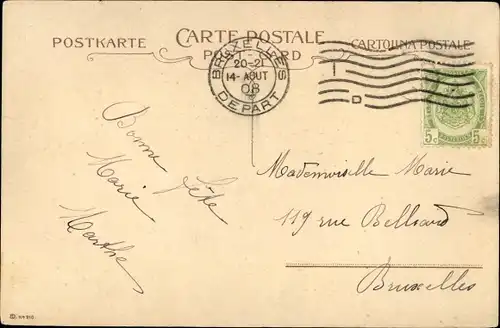 POSTKARTE
CARTE POSTALE
POST CARD
CARTOLINA POSTALE
BRUXELLES
20-21
14-AOUT
08
DEPART
D
5c 5c
Bonne fête
Marie
Marthe
Mademoiselle Marie
119 rue Belliard
Bruxelles